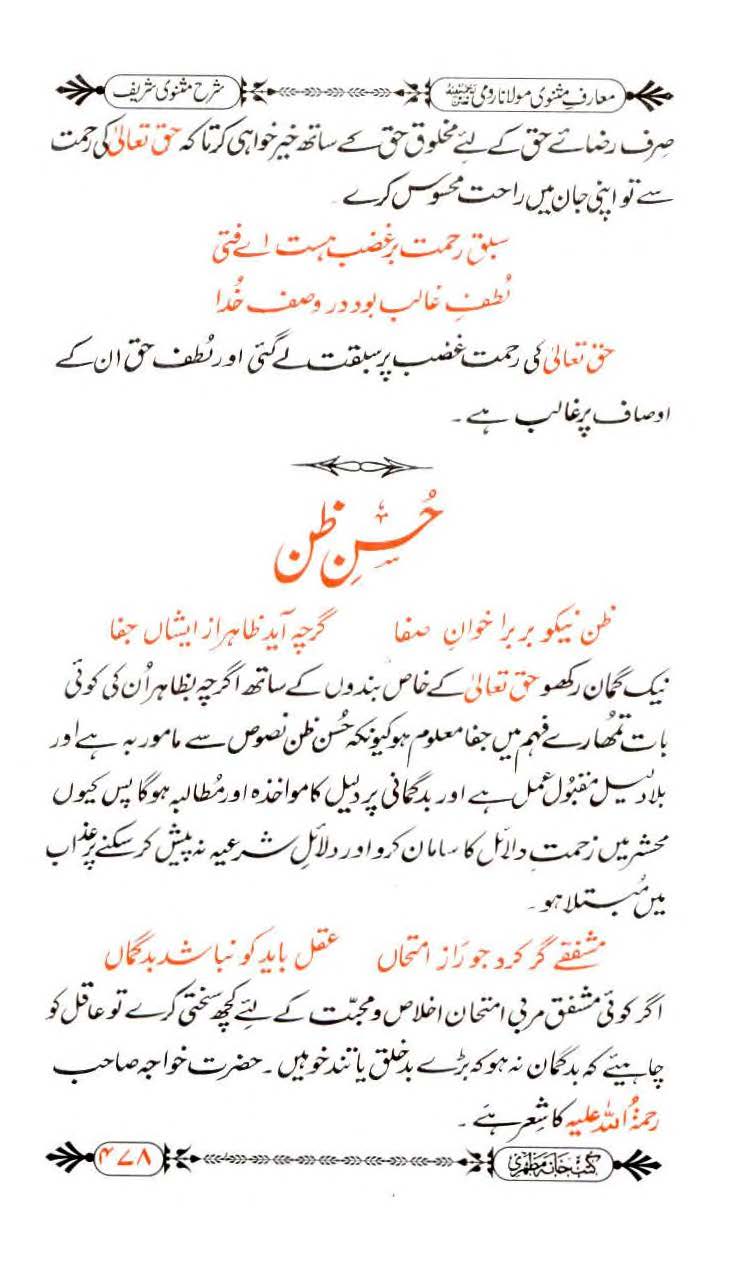 معارفِ مثنوی مولانا رومی رحمۃ اللہ علیہ
شرح مثنوی شریف
صِرف رضائے حق کے لئے مخلوقِ حق کے ساتھ خیر خواہی کر تاکہ حق تعالیٰ کی رحمت
سے تو اپنی جان میں راحت محسوس کرے۔
سبق رحمت بر غضب ہست اے فتیٰ
لُطفِ غالب بود در وصفِ خُدا
حق تعالیٰ کی رحمت غضب پر سبقت لے گئی اور لُطف حق ان کے
اوصاف پر غالب ہے۔
حُسنِ ظن
ظن نیکو بر براخوانِ صفا گرچہ آید ظاہر از ایشاں جفا
نیک گمان رکھو حق تعالیٰ کے خاص بندوں کے ساتھ اگرچہ بظاہر اُن کی کوئی
بات تمھارے فہم میں جفا معلوم ہو کیونکہ حُسن ظن نصوص سے مامور بہ ہے اور
بلا دلیل مقبُول عمل ہے اور بدگمانی پر دلیل کا مواخذہ اور مُطالبہ ہوگا پس کیوں
محشر میں زحمتِ دلائل کا سامان کرو اور دلائلِ شرعیہ نہ پیش کر سکنے پر عذاب
میں مُبتلا ہو۔
مشفقے گر کرد جور از امتحاں عقل باید کو نباشد بدگماں
اگر کوئی مشفق مربی امتحان اخلاص و محبّت کے لئے کچھ سختی کرے تو عاقل کو
چاہیئے کہ بدگمان نہ ہو کہ بڑے بدخلق یا تند خو ہیں۔ حضرت خواجہ صاحب
رحمۃُ اللہ علیہ کا شِعر ہے۔
کتب خانہ مظہری
۴۷۸